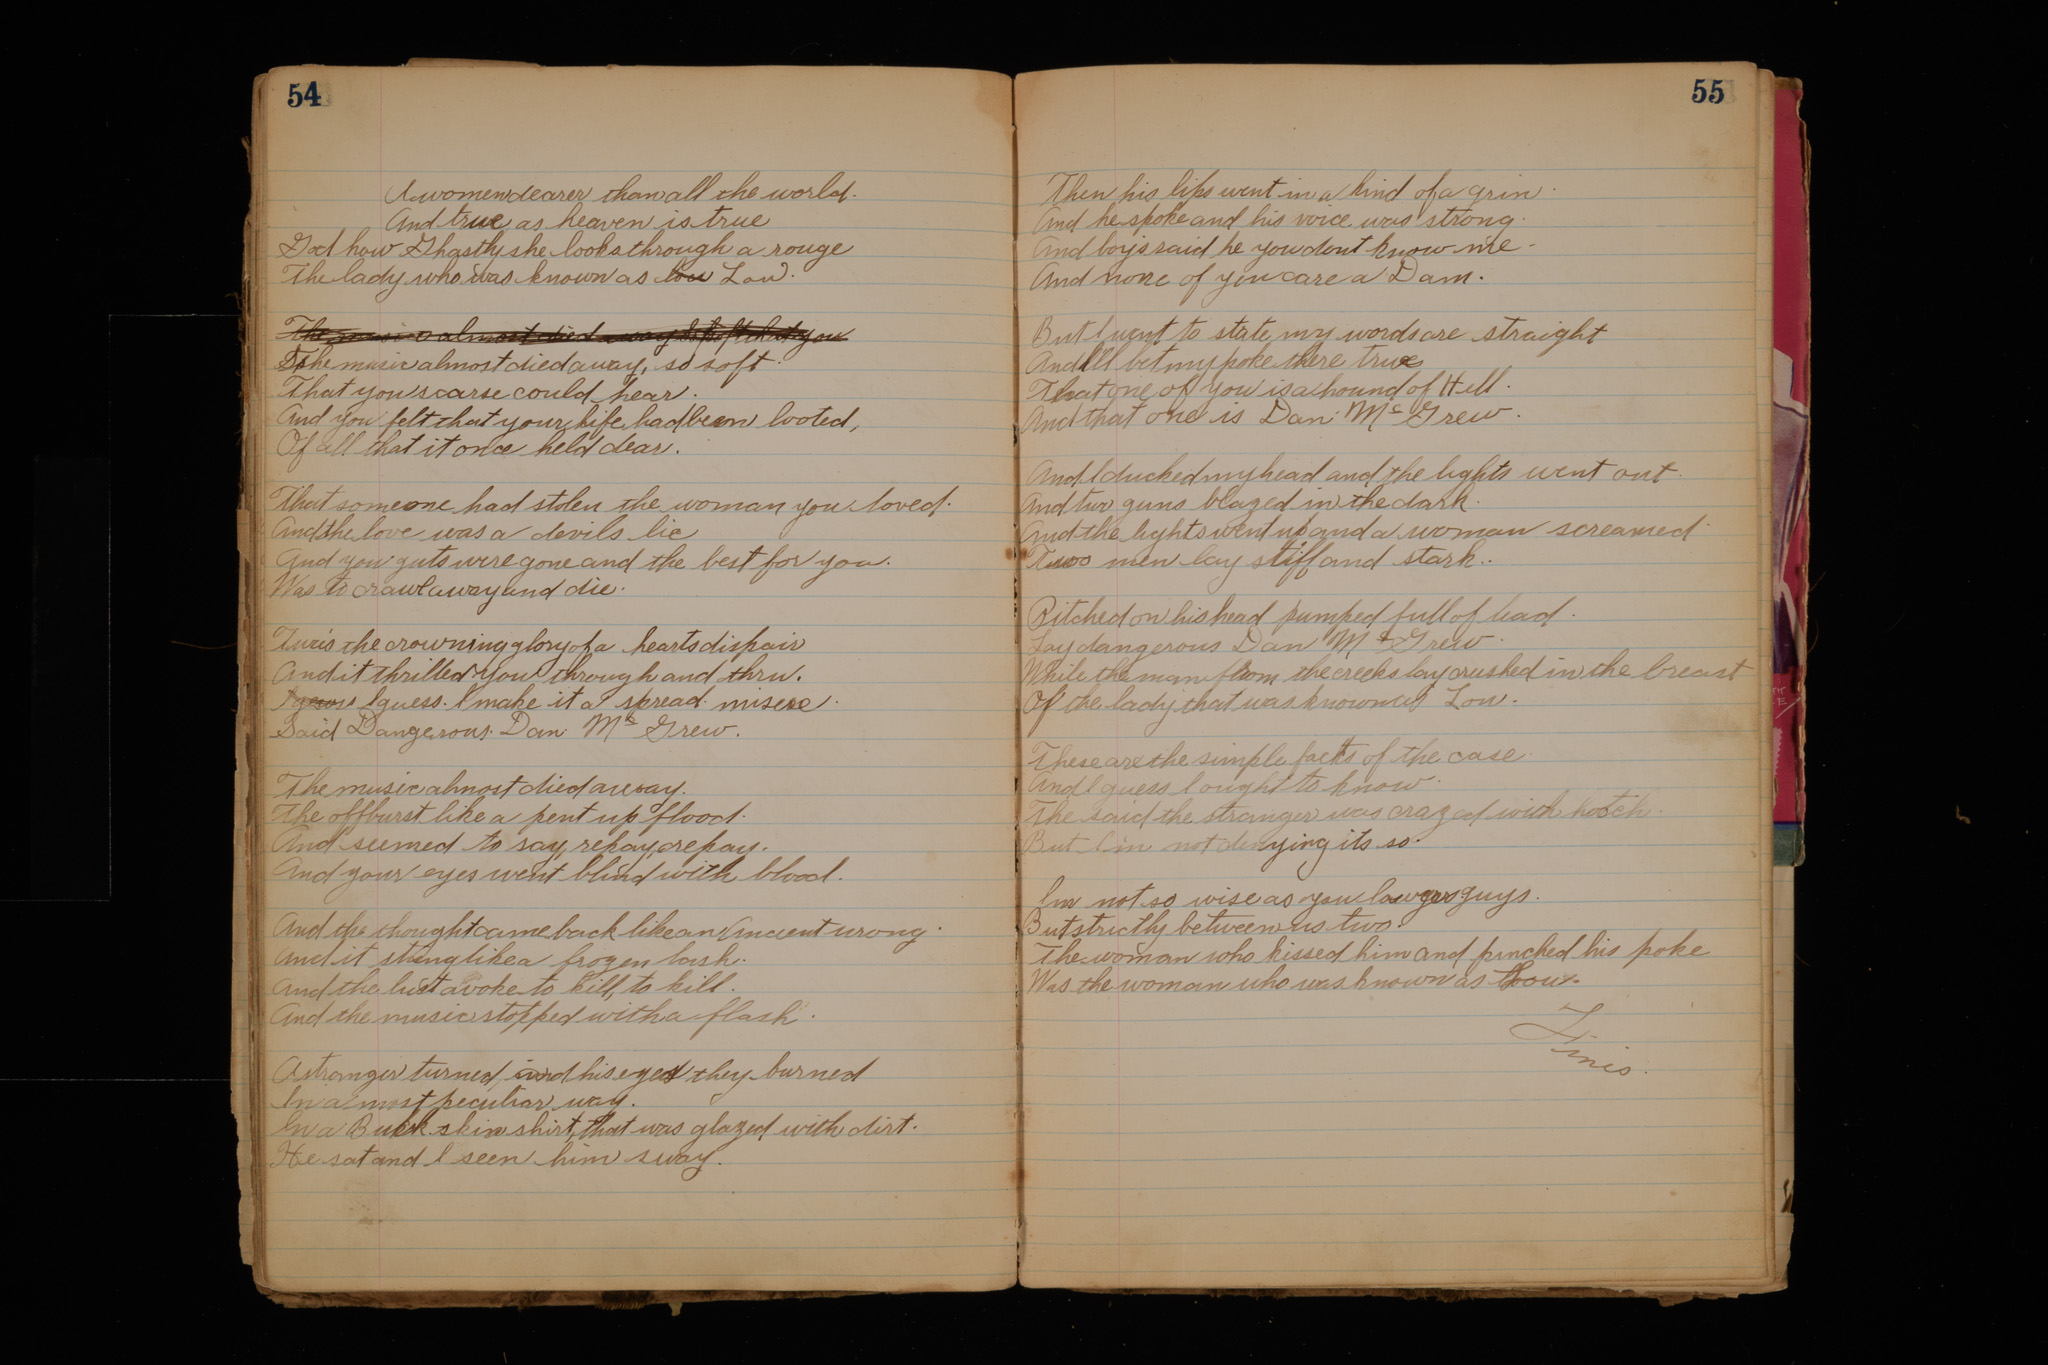 54
A women dearer than all the world.
And true as heaven is true
God how Ghastly she looks through a rouge
The lady who was known as Lou.
The music almost died away so soft that you
The music almost died away, so soft
That you scarse could hear.
And you felt that your life had been looted,
Of all that it once held dear.
That someone had stolen the woman you loved.
And the love was a devils lie
And you guts were gone and the best for you.
Was to crawl away and die.
Twas the crowning glory of a hearts dispair
And it thrilled you through and thru.
I guess. I make it a spread misere.
Said Dangerous Dan Mc Grew.
The music almost died away.
The offburst like a pent up flood.
And seemed to say, repay, repay.
And your eyes went blind with blood.
And the thought came back like an Ancient wrong.
And it stung like a frozen lash.
And the lust avoke to kill, to kill.
And the music stopped with a flash.
A stranger turned, and his eyes they burned
In a most peculiar way.
In a Buck skin shirt, that was glazed with dirt.
He sat and I seen him sway.
55
Then his lips went in a kind of a grin.
And he spoke and his voice was strong.
And boys said he you dont know me.
And none of you care a Dam.
But I want to state my words are straight
And Ill bet my poke there true
That one of you is a hound of Hell.
And that one is Dan Mc Grew.
And I ducked my head and the lights went out.
And two guns blazed in the dark.
And the lights went up and a woman screamed
Two men lay stiff and stark.
Pitched on his head pumped full of lead.
Lay dangerous Dan Mc Grew.
While the man from the creeks lay crushed in the breast
Of the lady that was known as Lou.
These are the simple facts of the case.
And I guess I ought to know.
The said the stranger was crazed with hootch.
But Im not denying its so.
Im not so wise as you lawyer guys.
But strictly between us two.
The woman who kissed him and pinched his poke
Was the woman who was known as Lou.
Finis.